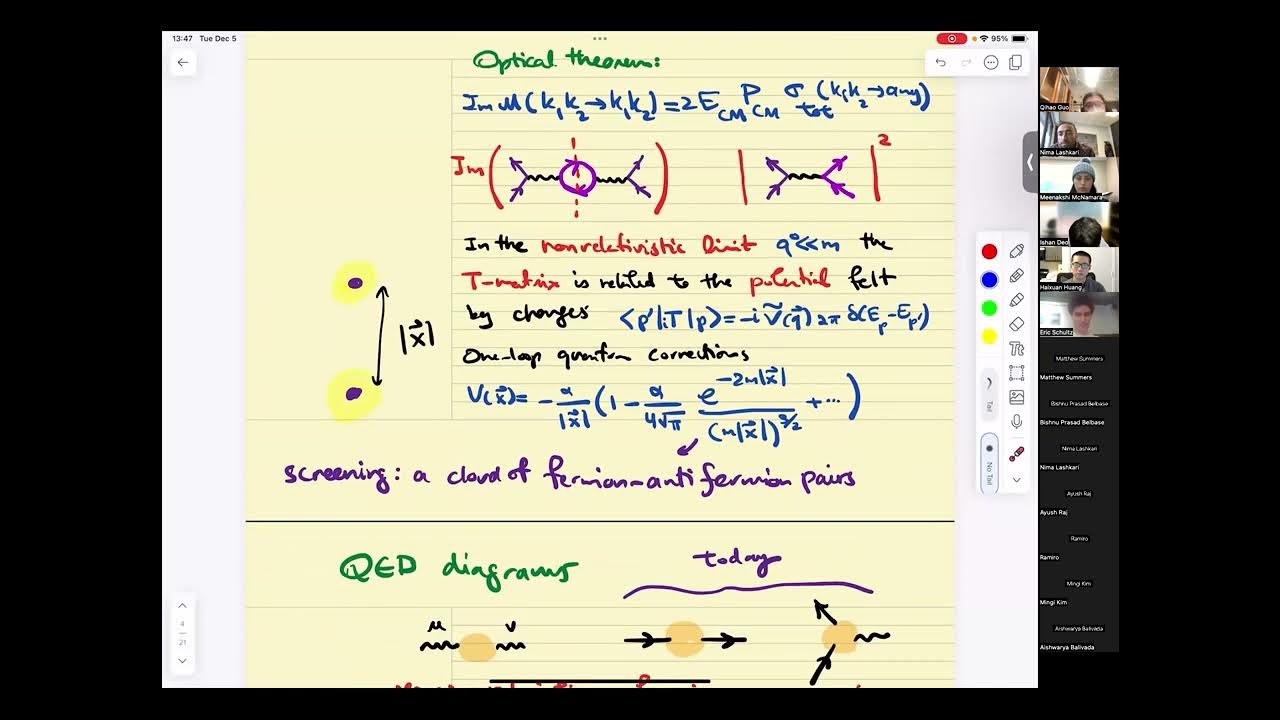 13:47 Tue Dec 5
95%
Optical theorem:
Im M(k₁k₂→k₁k₂)=2E_CM P_CM σ_tot (k₁k₂→any)
Im ( ) | |²
In the nonrelativistic limit q⁰<<m the
T-matrix is related to the potential felt
by charges <p'|iT|p>=-iṼ(q⃗)2π δ(E_p-E_p')
One-loop quantum corrections
|x⃗|
V(x⃗)= -α/|x⃗| (1 - α/4√π e^{-2m|x⃗|}/(m|x⃗|)^{3/2} + ...)
screening: a cloud of fermion-antifermion pairs
QED diagrams
today
μ ν
4
21
Tt
Tail
No Tail
Qihao Guo
Nima Lashkari
Meenakshi McNamara
Ishan Deo
Haixuan Huang
Eric Schultz
Matthew Summers
Matthew Summers
Bishnu Prasad Belbase
Bishnu Prasad Belbase
Nima Lashkari
Nima Lashkari
Ayush Raj
Ayush Raj
Ramiro
Ramiro
Mingi Kim
Mingi Kim
Aishwarya Balivada
Aishwarya Balivada